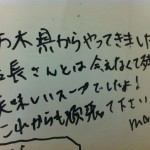 木県からやってきました
長さんとは会えなくて残
美味しいスープでしたよ!
これからも頑張って下さい
ma